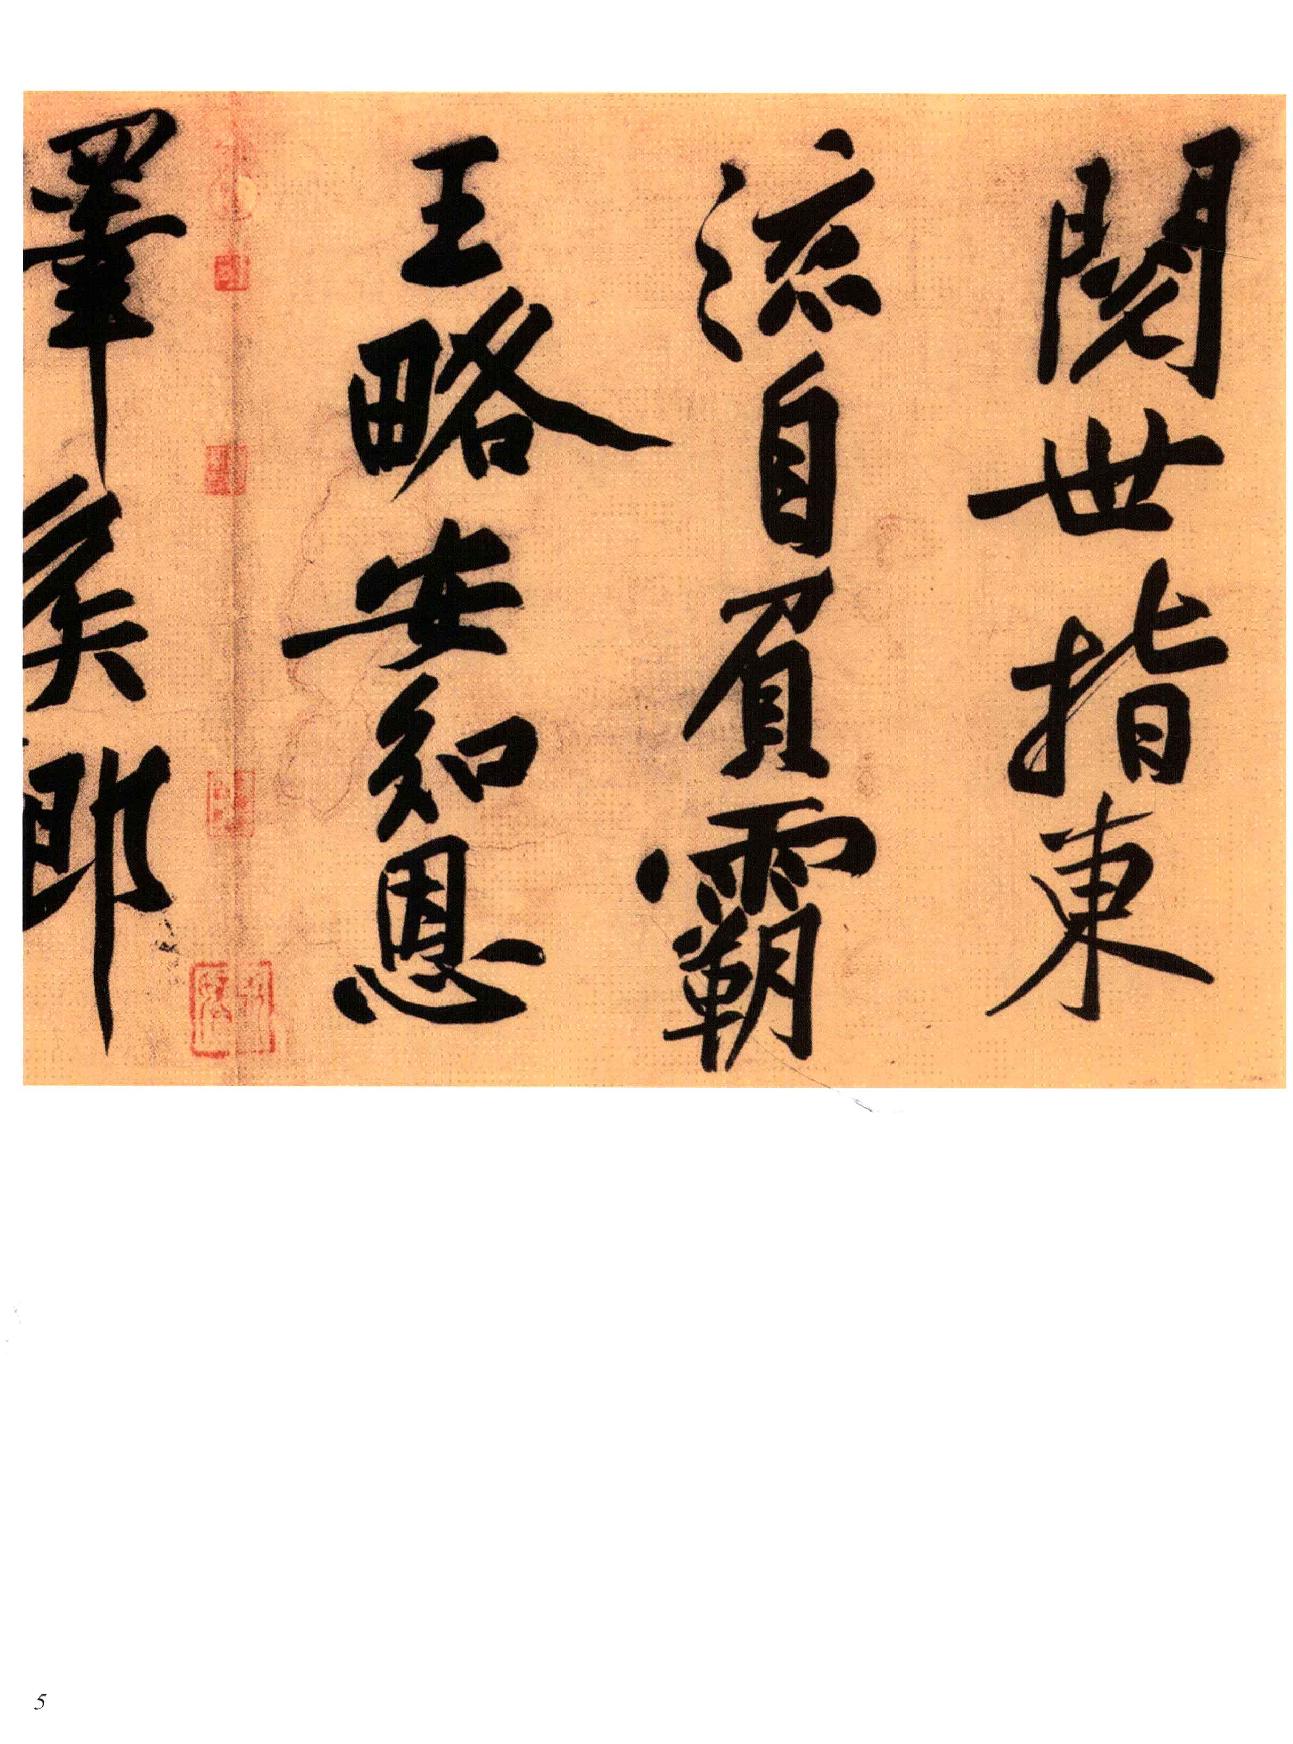 閱世指東
流自負霸
王略安知恩
澤侯鄉
5